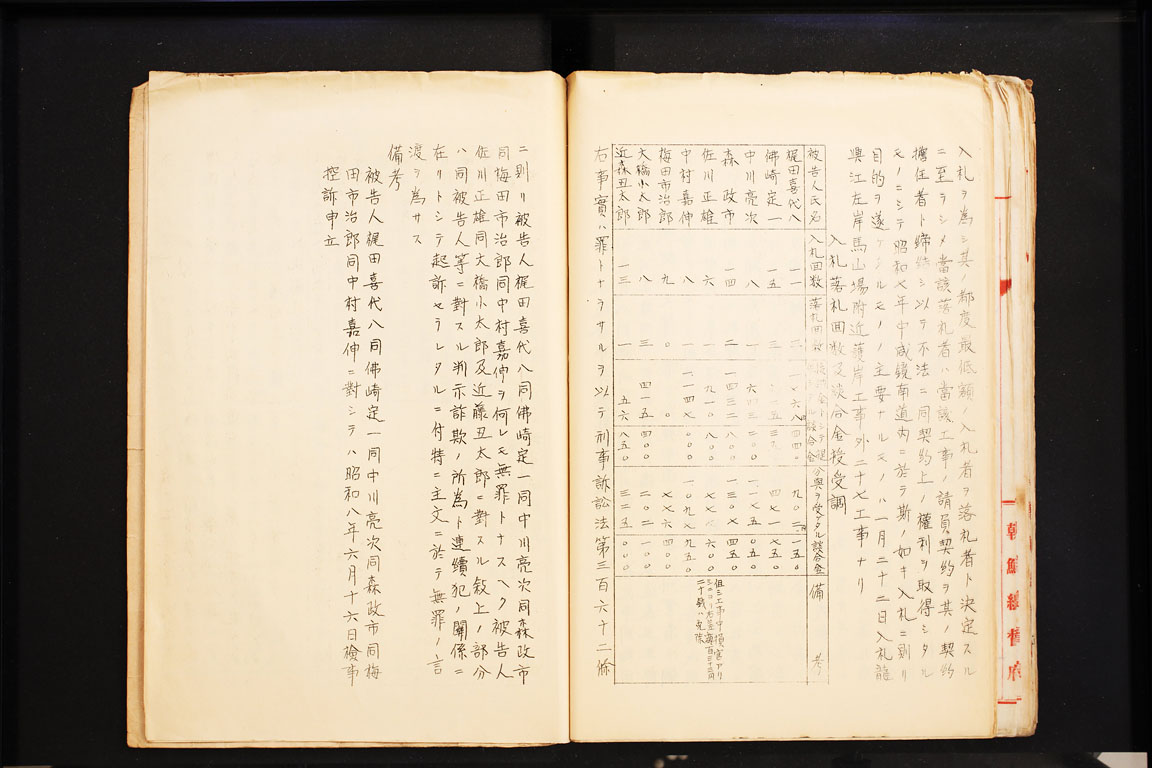 入札ヲ爲シ其ノ都度最低額ノ入札者ヲ落札者ト決定スル
ニ至ラシメ當該落札者ハ當該工事ノ請負契約ヲ其ノ契約
擔任者ト締結シ以テ不法ニ同契約上ノ權利ヲ取得シタル
モノニシテ昭和七年中咸鏡南道内ニ於テ斯ノ如キ入札ニ則リ
目的ヲ遂ケシルモノノ主要ナルモノハ一月二十二日入札龍
興江左岸馬山場附近護岸工事外二十七工事ナリ
入札落札回數及談合金授受調
被告人氏名 入札回數 落札回數 談合金 分與ヲ受タル談合金 備考
梶田喜代八 一一 二
佛崎定一 一五 三
中川亮次 八 一
森政市 一四 二 一四三二 八〇〇 一三〇七 四五〇
佐川正雄 六 一 九一〇 八〇〇 六〇〇
中村嘉伸 八 一 一一四七 〇〇〇 一〇九七 九五〇
梅田市治郎 九 〇 〇 〇 七七六 四〇〇
大橋小太郎 八 三 四一五 四〇〇 二〇二 一〇〇
近森丑太郎 一三 一 五六 八五〇 三二五 〇〇〇
右事實ハ罪トナラサルヲ以テ刑事訴訟法第三百六十二條
ニ則リ被告人梶田喜代八同佛崎定一同中川亮次同森政市
同梅田市治郎同中村嘉伸ヲ何レモ無罪トナスヘク被告人
佐川正雄同大橋小太郎及近藤丑太郎ニ對スル敍上ノ部分
ハ同被告人等ニ對スル判示詐欺ノ所爲ト連續犯ノ關係ニ
在リトシテ起訴セラレタルニ付特ニ主文ニ於テ無罪ノ言
渡ヲ爲サス
備考
被告人梶田喜代八同佛崎定一同中川亮次同森政市同梅
田市治郎同中村嘉伸ニ對シテハ昭和八年六月十六日檢事
控訴申立
朝鮮總督府